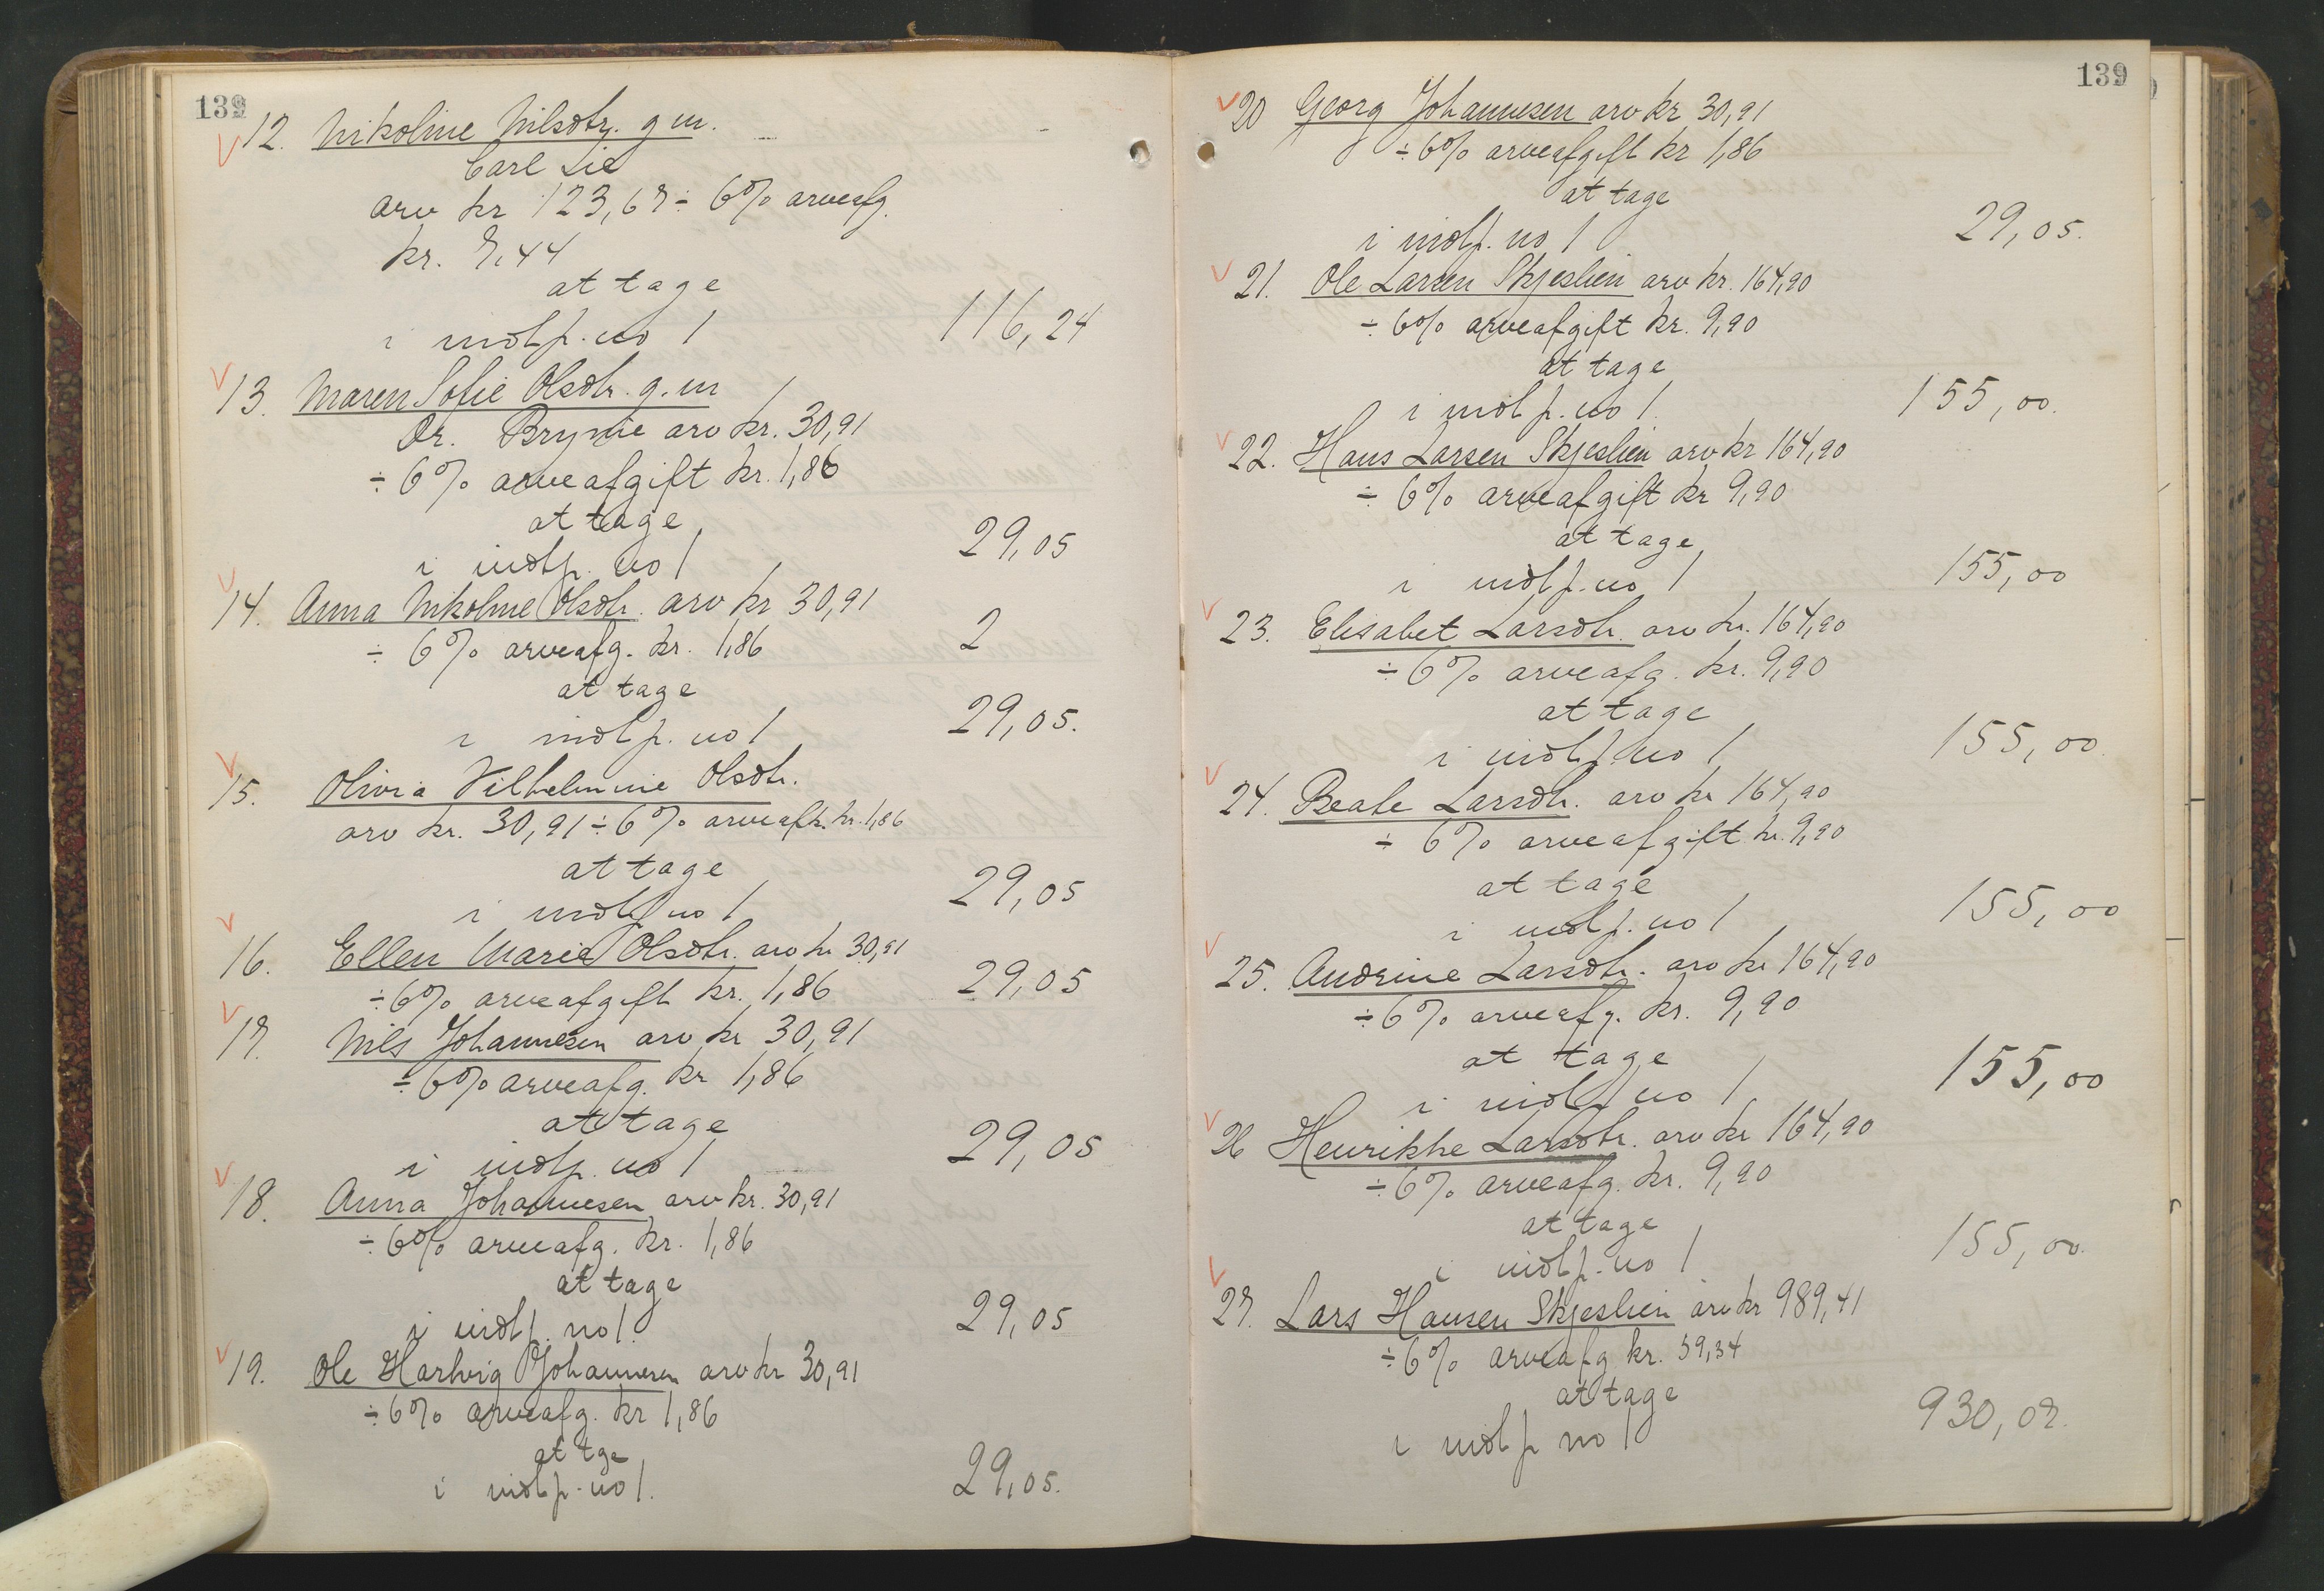 139
12. Nikoline Nilsdtr. g m.
Carl Lie
arv kr 123,67 ÷ 6% arveafg.
kr. 7,44
at tage
i indtp. no 1 116,24
13. Maren Sofie Olsdtr. g. m
Dr. Brynie arv kr. 30,91
÷ 6% arveafgift kr. 1,86
at tage
i indtp. no 1 29,05
14. Anna Nikoline Olsdtr. arv kr 30,91
÷ 6% arveafg. kr. 1,86 2
at tage
i indtp. no 1 29,05.
15. Olivia Vilhelmine Olsdtr.
arv kr. 30,91 ÷ 6% arveaft. kr. 1,86
at tage
i indtp no 1 29,05
16. Ellen Marie Olsdtr. arv kr 30,91
÷ 6% arveafgift kr. 1,86 29,05
17. Nils Johannesen arv kr 30,91
÷ 6% arveafg. kr 1,86
at tage
i indtp. no 1 29,05
18. Anna Johannesen arv kr. 30,91
÷ 6% arveafg. kr. 1,86
at tage
i indtp. no 1. 29,05
19. Ole Hartvig Johannesen arv kr 30,91
÷ 6% arveafg. kr 1,86
at tge
i indtp. no 1. 29,05.
139
20 Georg Johannesen arv kr 30,91
÷ 6% arveafgift kr 1,86
at tage
i indtp. no 1 29,05.
21. Ole Larsen Skjeslien arv kr. 164,90
÷ 6% arveafgift kr. 9,90
at tage
i indtp. no 1. 155,00.
22. Hans Larsen Skjeslien arv kr 164,90
÷ 6% arveafgift kr 9,90
at tage
i indtp. no 1 155,00
23. Elisabet Larsdtr. arv kr. 164,90
÷ 6% arveafg. kr. 9,90
at tage
i indtp. no 1 155,00.
24. Beate Larsdtr. arv kr 164,90
÷ 6% arveafgift kr. 9,90
at tage
i indtp. no 1 155,00
25. Andrine Larsdtr. arv kr 164,90
÷ 6% arveafg. kr. 9,90
at tage
i indtp no 1 155,00
26 Henrikke Larsdtr. arv kr 164,90
÷ 6% arveafg. kr. 9,90
at tage
i indtp. no 1 155,00.
27. Lars Hansen Skjeslien arv kr 989,41
÷ 6% arveafg kr. 59,34
at tage
i indtp no 1 930,07.